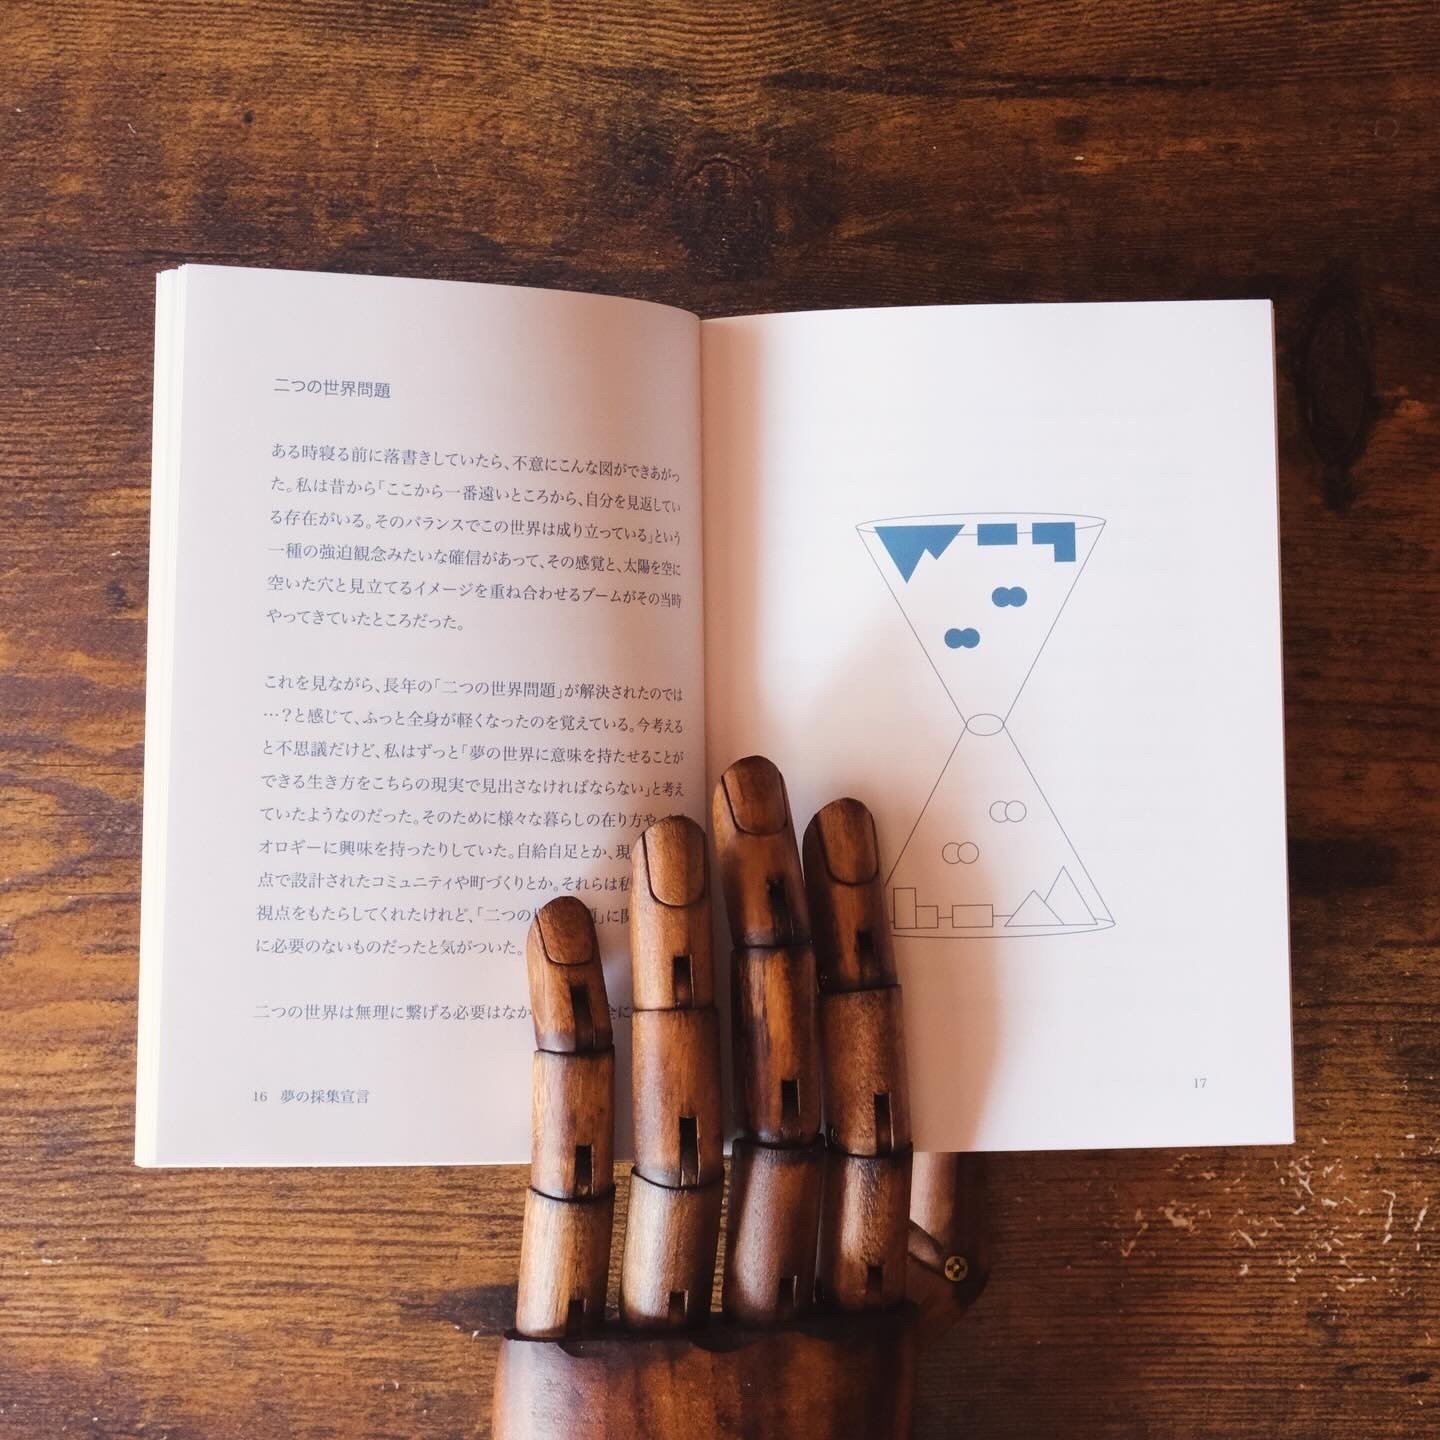 二つの世界問題
ある時寝る前に落書きしていたら、不意にこんな図ができあがっ
た。私は昔から「ここから一番遠いところから、自分を見返してい
る存在がいる。そのバランスでこの世界は成り立っている」という
一種の強迫観念みたいな確信があって、その感覚と、太陽を空に
空いた穴と見立てるイメージを重ね合わせるブームがその当時
やってきていたところだった。
これを見ながら、長年の「二つの世界問題」が解決されたのでは
…？と感じて、ふっと全身が軽くなったのを覚えている。今考える
と不思議だけど、私はずっと「夢の世界に意味を持たせることが
できる生き方をこちらの現実で見出さなければならない」と考え
ていたようなのだった。そのために様々な暮らしの在り方や
オロギーに興味を持ったりしていた。自給自足とか、現
点で設計されたコミュニティや町づくりとか。それらは私
視点をもたらしてくれたけれど、「二つの世 題」に関
に必要のないものだったと気がついた。
二つの世界は無理に繋げる必要はなか 全に
16 夢の採集宣言
17